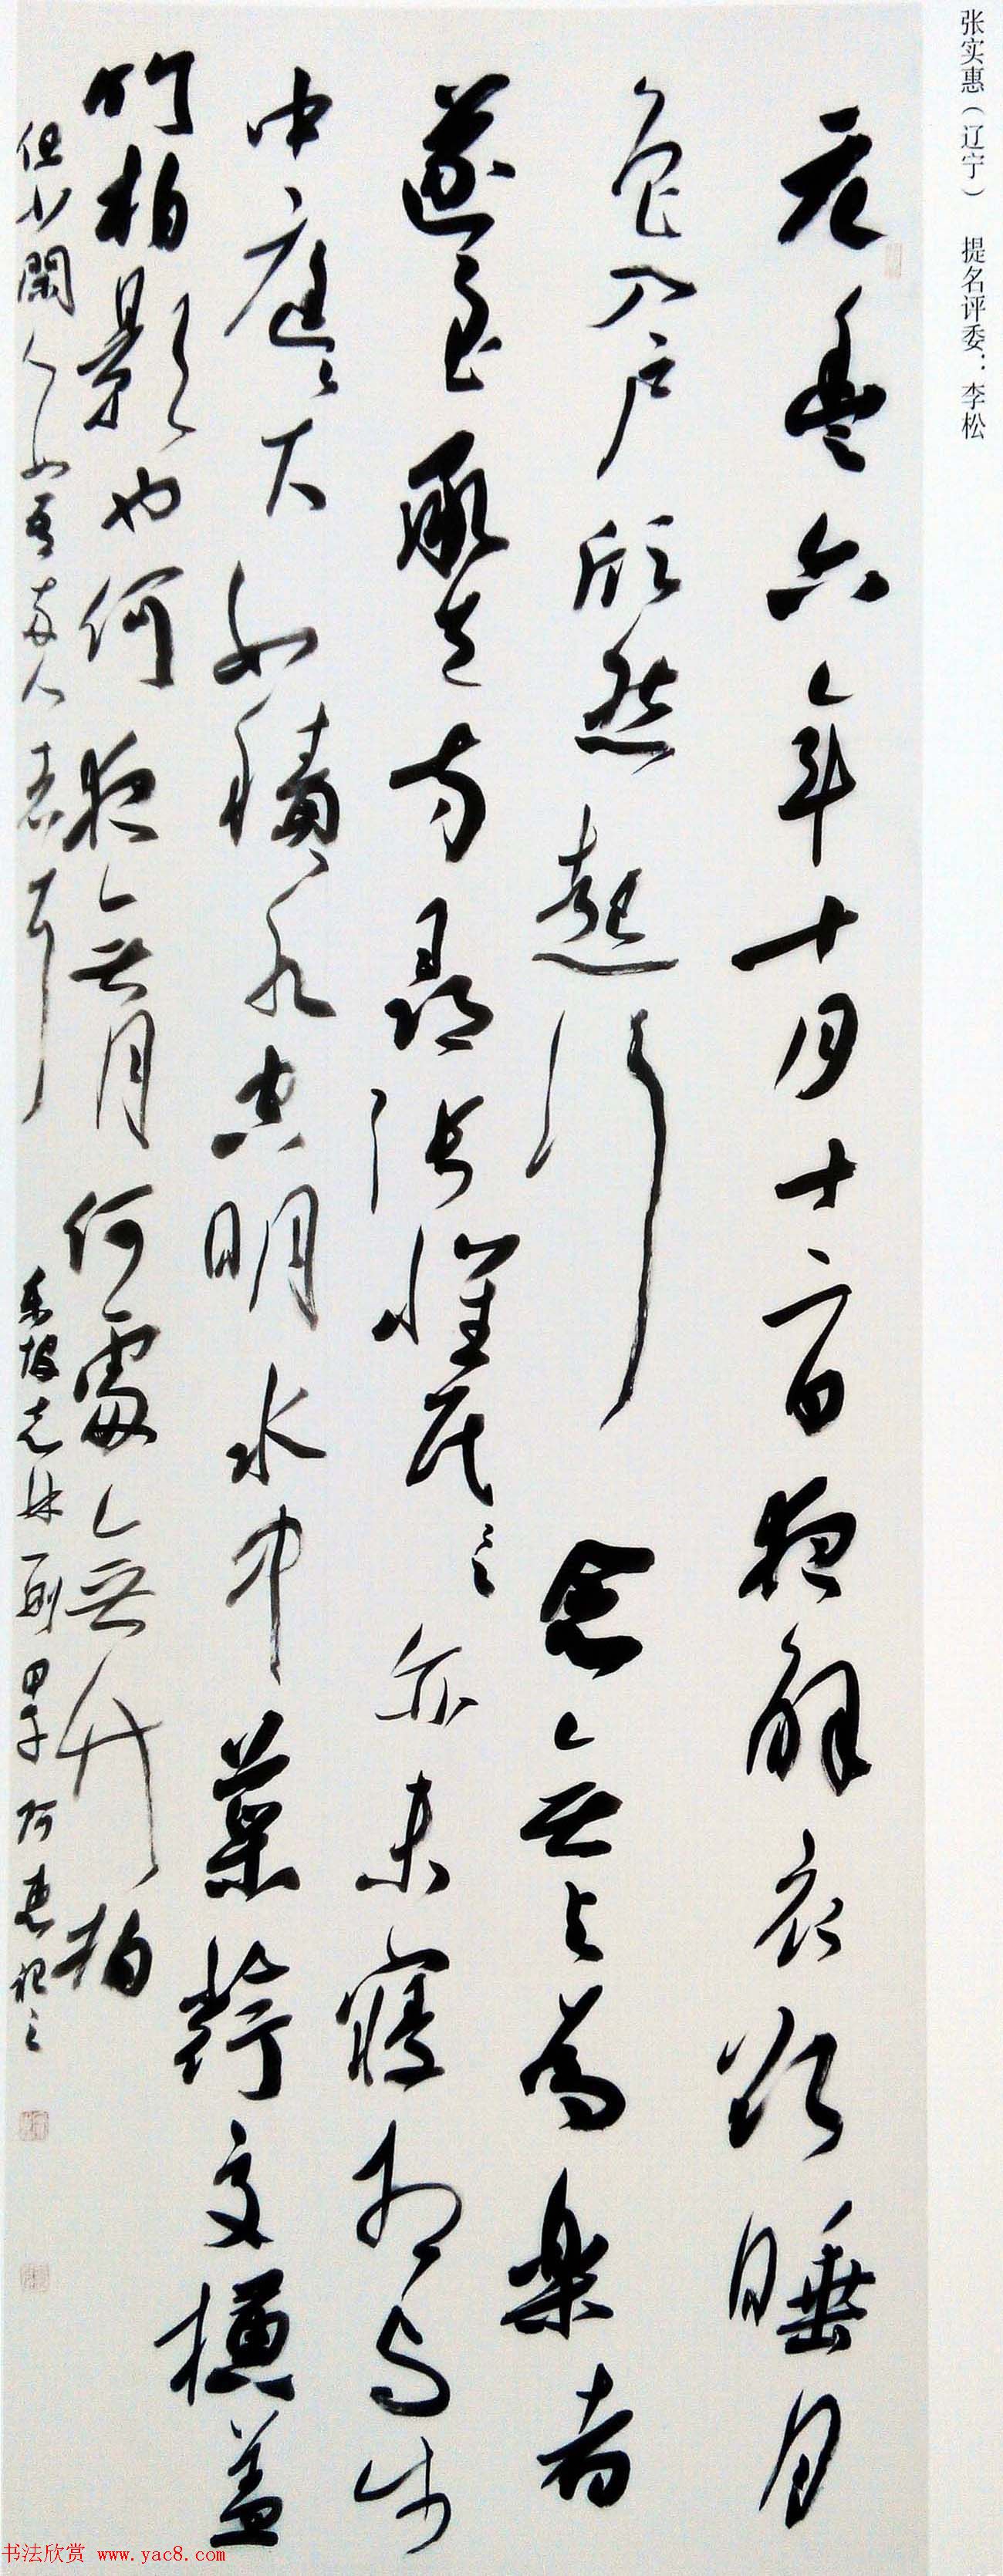 张实惠（辽宁） 提名评委：李松
元豐六年十月十二日夜解衣欲睡月
色入户欣然起行念無与為樂者
遂至承天寺尋張懷民〻亦未寝相与步
中庭〻大如積水空明水中藻荇交横蓋
竹柏影也何夜無月何處無竹柏
但少閑人如吾兩人者耳 东坡志林一則 甲午阿惠記之
书法欣赏 www.yac8.com